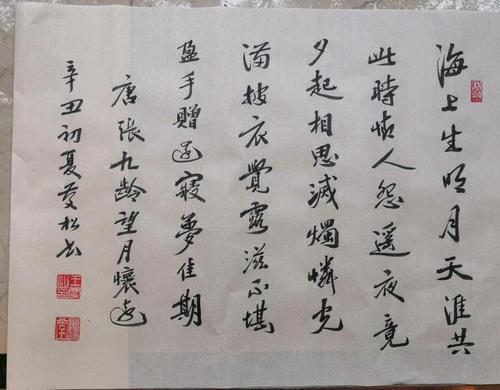 海上生明月天涯共
此時情人怨遥夜竟
夕起相思滅燭憐光
滿披衣覺露滋不堪
盈手贈還寢夢佳期
唐張九龄望月懷遠
辛丑初夏松书